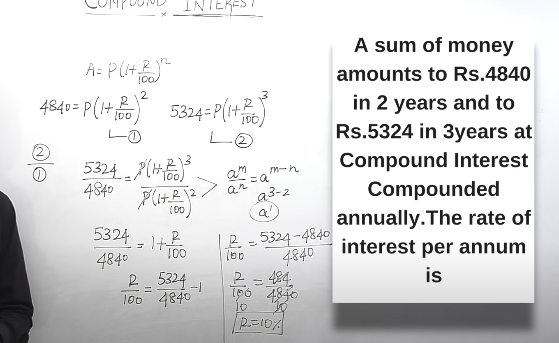 COMPOUND INTEREST
A = P(1+R/100)^n
4840 = P(1+R/100)^2 5324 = P(1+R/100)^3
① ②
②/①
5324/4840 = P(1+R/100)^3 / P(1+R/100)^2 > a^m/a^n = a^m-n
a^3-2
a^1
5324/4840 = 1+R/100
R/100 = 5324/4840 - 1
R/100 = 5324-4840/4840
R/100 = 484/4840
10 10
R=10%
A sum of money
amounts to Rs.4840
in 2 years and to
Rs.5324 in 3years at
Compound Interest
Compounded
annually.The rate of
interest per annum
is